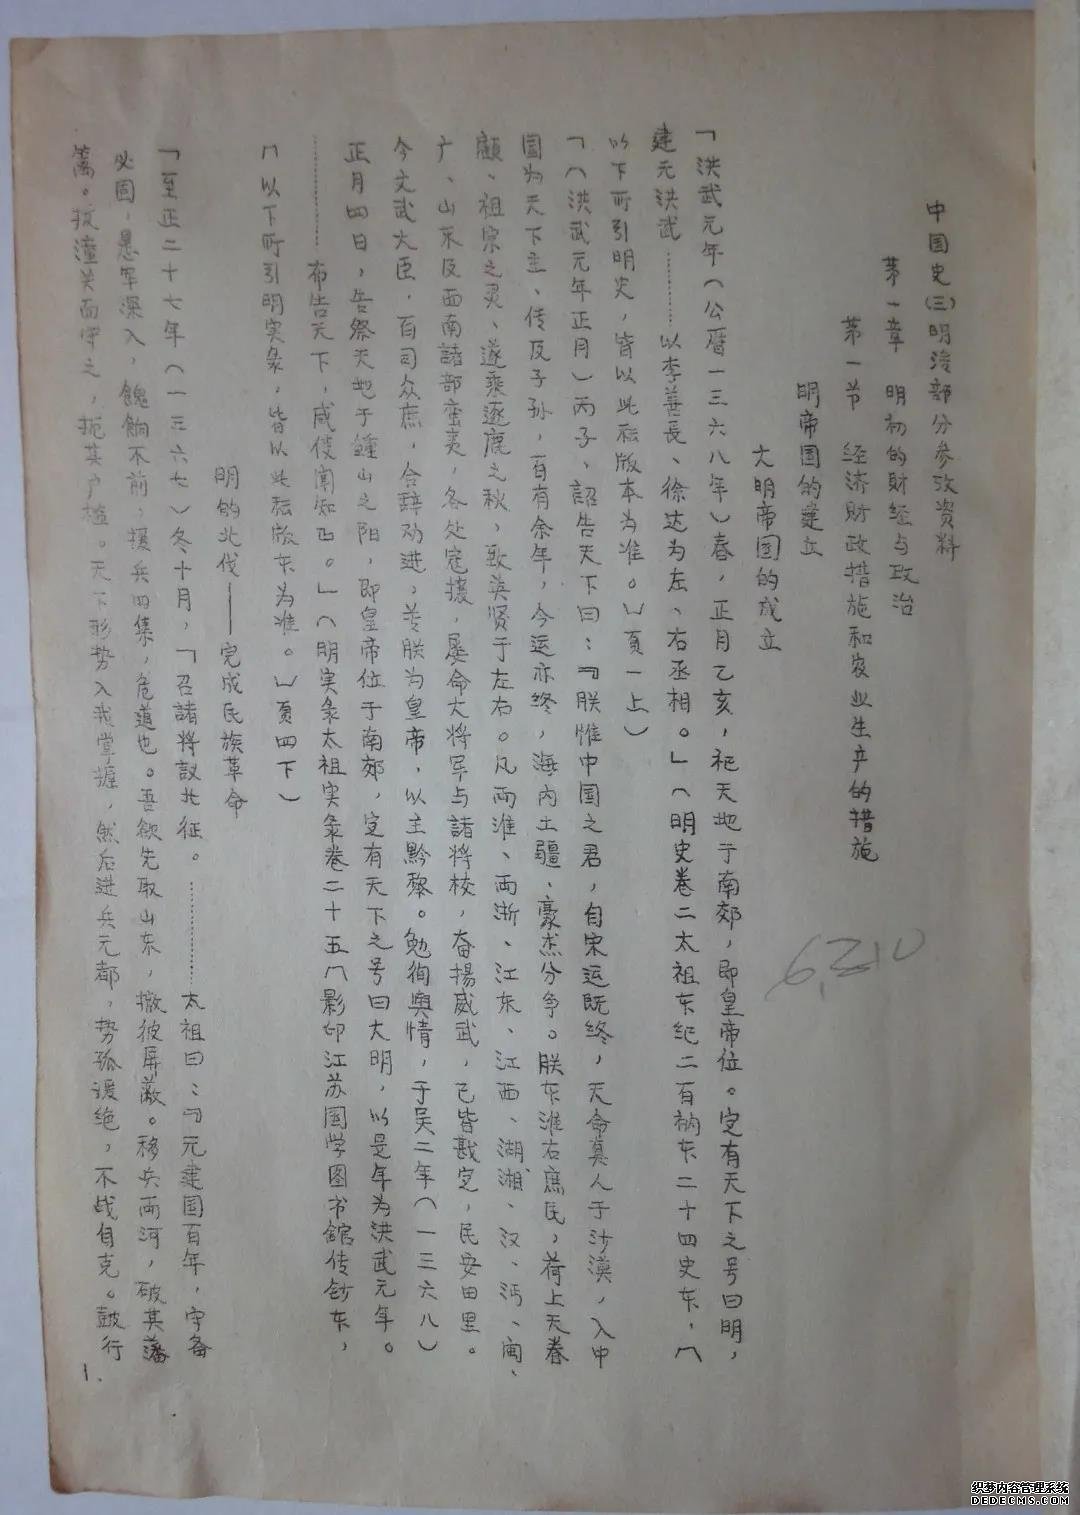 中国史(三)明清部分参考资料
第一章　明初的财经与政治
第一节　经济财政措施和农业生产的措施
明帝国的建立
大明帝国的成立
「洪武元年(公曆一三六八年)春，正月乙亥，祀天地于南郊，即皇帝位。定有天下之号曰明，
建元洪武………以李善長、徐达为左、右丞相。」(明史卷二太祖本纪二百衲本二十四史本，〔
以下所引明史，皆以此种版本为准。〕頁一上)
「(洪武元年正月)丙子、詔告天下曰：『朕惟中国之君，自宋运既终，天命真人于沙漠，入中
国为天下主、传及子孙，百有余年，今运亦终，海内土疆、豪杰分争。朕本淮右庶民，荷上天眷
顧、祖宗之灵、遂乘逐鹿之秋，致英贤于左右。凡两淮、两浙、江东、江西、湖湘、汉、沔、闽、
广、山东及西南諸部蛮夷，各处寇攘，屡命大将军与諸将校，奋揚威武，已皆戡定，民安田里。
今文武大臣，百司众庶，合辞劝进，尊朕为皇帝，以主黔黎。勉徇輿情，于吴二年(一三六八)
正月四日，告祭天地于鍾山之阳，即皇帝位于南郊，定有天下之号曰大明，以是年为洪武元年。
………布告天下，咸使闻知』。」(明实彔太祖实彔卷二十五〔影印江苏国学图书館传钞本，
〔以下所引明实彔，皆以此种版本为准。〕頁四下)
明的北伐——完成民族革命
「至正二十七年(一三六七)冬十月，「召諸将议北征。………太祖曰：『元建国百年，守备
必固，悬军深入，餽餉不前，援兵四集，危道也。吾欲先取山东，撤彼屏蔽。移兵两河，破其藩
篱。拔潼关而守之，扼其户槛。天下形势入我掌握，然后进兵元都，势孤援绝，不战自克。鼓行
1.
6,210
织梦内容管理系统
DEDECMS.COM